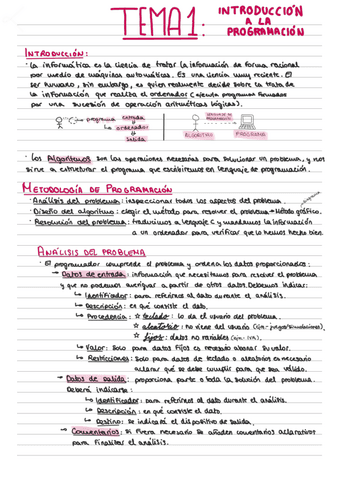 TEMA 1: INTRODUCCIÓN A LA PROGRAMACIÓN
INTRODUCCIÓN:
· La informática es la ciencia de tratar la información de forma racional
por medio de máquinas automáticas. Es una ciencia muy reciente. El
ser humano, sin embargo, es quien realmente decide sobre la trata de
la información que realiza el ordenador (ejecuta programas formados
por una sucesión de operación aritméticas lógicas).
programa entrada
ordenador
salida
LENGUAJE DE PROGRAMACIÓN
ALGORITMO
PROGRAMA
· Los Algoritmos son las operaciones necesarias para solucionar un problema, y nos
sirve a estructurar el programa que escribiremos en lenguaje de programación.
METODOLOGÍA DE PROGRAMACIÓN
· Análisis del problema: inspeccionar todos los aspectos del problema.
· Diseño del algoritmo: elegir el método para resolver el problema → Método gráfico.
· Resolución del problema: traducimos a lenguaje C y mandamos
a un ordenador para verificar que lo hemos hecho bien.
ANÁLISIS DEL PROBLEMA
· El programador comprende el problema y ordena los datos proporcionados:
↳ Datos de entrada: información que necesitamos para resolver el problema
y que no podemos averiguar a partir de otros datos. Debemos indicar:
↳ Identificador: para referirnos al dato durante el análisis.
↳ Descripción: en qué consiste el dato.
↳ Procedencia: ☆ teclado: lo da el usuario del problema.
☆ aleatorio: no viene del usuario (ejm.: juegos/simulaciones).
☆ fijos: datos no variables (ejm.: IVA).
↳ Valor: Solo para datos fijos es necesario aclarar su valor.
↳ Restricciones: Solo para datos de teclado o aleatorio es necesario
aclarar qué se debe cumplir para que sea válido.
↳ Datos de salida: proporciona parte o toda la solución del problema.
Deberá indicarse:
↳ Identificador: para referirnos al dato durante el análisis.
↳ Descripción: en qué consiste el dato.
↳ Destino: se indicará el dispositivo de salida.
↳ Comentarios: si fuera necesario se añaden comentarios aclarativos
para finalizar el análisis.